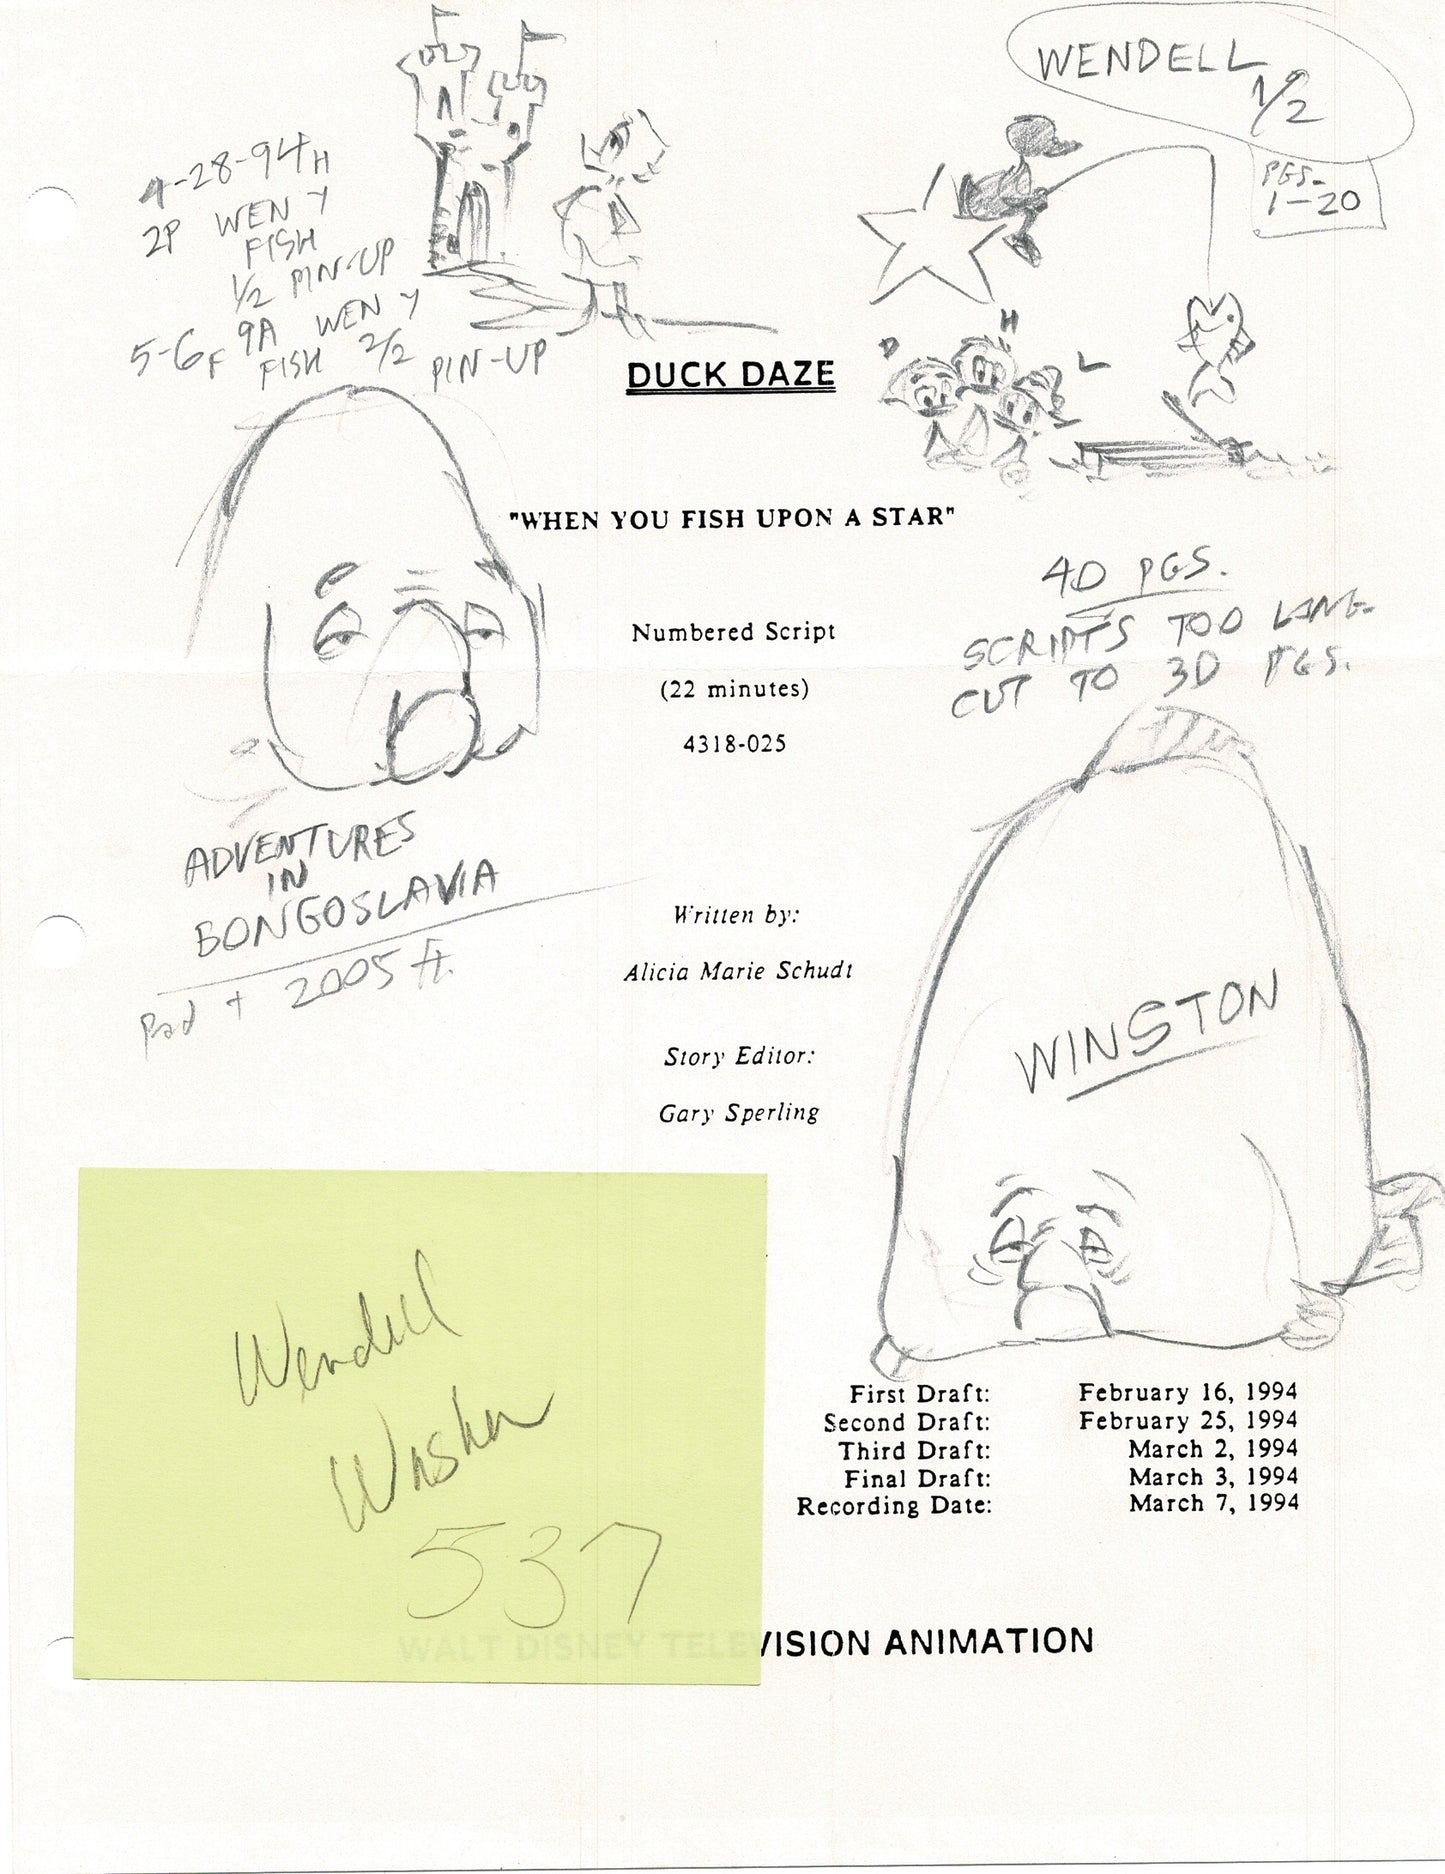 WENDELL
1/2
PGS.
1-20
4-28-94 H
2P WEN Y
FISH
1/2 PIN-UP
5-6 F 9A WEN Y
FISH 2/2 PIN-UP
D H L
DUCK DAZE
"WHEN YOU FISH UPON A STAR"
40 PGS.
SCRIPTS TOO LONG
CUT TO 30 PGS.
Numbered Script
(22 minutes)
4318-025
ADVENTURES
IN
BONGOSLAVIA
Pad + 2005 ft.
Written by:
Alicia Marie Schudt
WINSTON
Story Editor:
Gary Sperling
Wendell
Washer
537
First Draft: February 16, 1994
Second Draft: February 25, 1994
Third Draft: March 2, 1994
Final Draft: March 3, 1994
Recording Date: March 7, 1994
WALT DISNEY TELEVISION ANIMATION